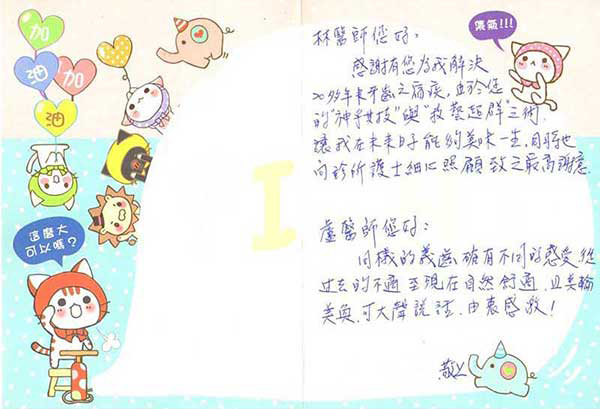 加
油
加
油
這麼大
可以嗎?
集氣!!!
林醫師您好:
感謝有您為我解決
20多年來牙齒之痼疾,由於您
的"神乎其技"與"醫藝超群"之術
讓我在未來日子能夠美味一生,同時也
向診所護士細心照顧致之最高謝意.
盧醫師您好:
同樣的義齒,確有不同的感受 從
過去的不適 至現在自然舒適,且美輪
美奐,可大聲說話,由衷感激!
敬上